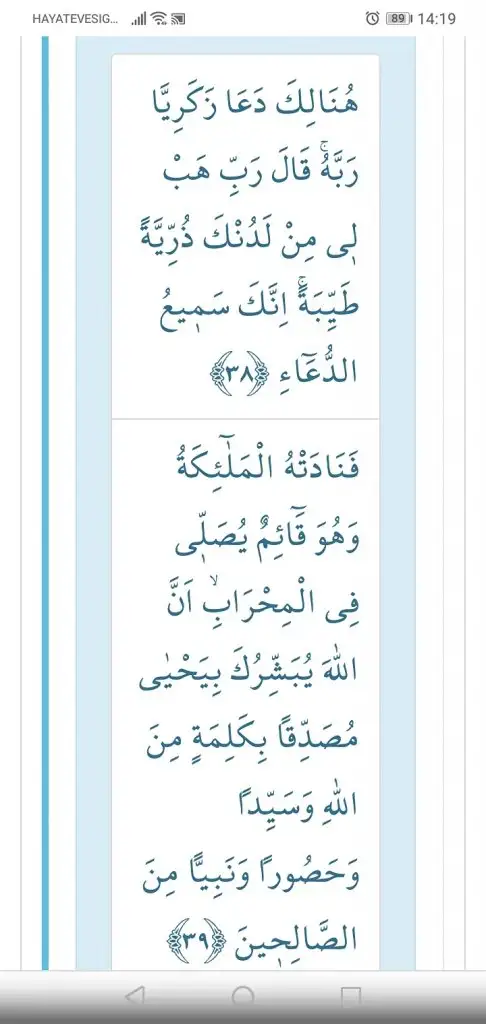 HAYATEVESIG... 89 14:19
هُنَالِكَ دَعَا زَكَرِيَّا
رَبَّهُۚ قَالَ رَبِّ هَبْ
ل۪ى مِنْ لَدُنْكَ ذُرِّيَّةً
طَيِّبَةًۚ اِنَّكَ سَم۪يعُ
الدُّعَٓاءِ ﴿٣٨﴾
فَنَادَتْهُ الْمَلٰٓئِكَةُ
وَهُوَ قَٓائِمٌ يُصَلّ۪ى
فِى الْمِحْرَابِۙ اَنَّ
اللهَ يُبَشِّرُكَ بِيَحْيٰى
مُصَدِّقًا بِكَلِمَةٍ مِنَ
اللهِ وَسَيِّدًا
وَحَصُورًا وَنَبِيًّا مِنَ
الصَّالِح۪ينَ ﴿٣٩﴾